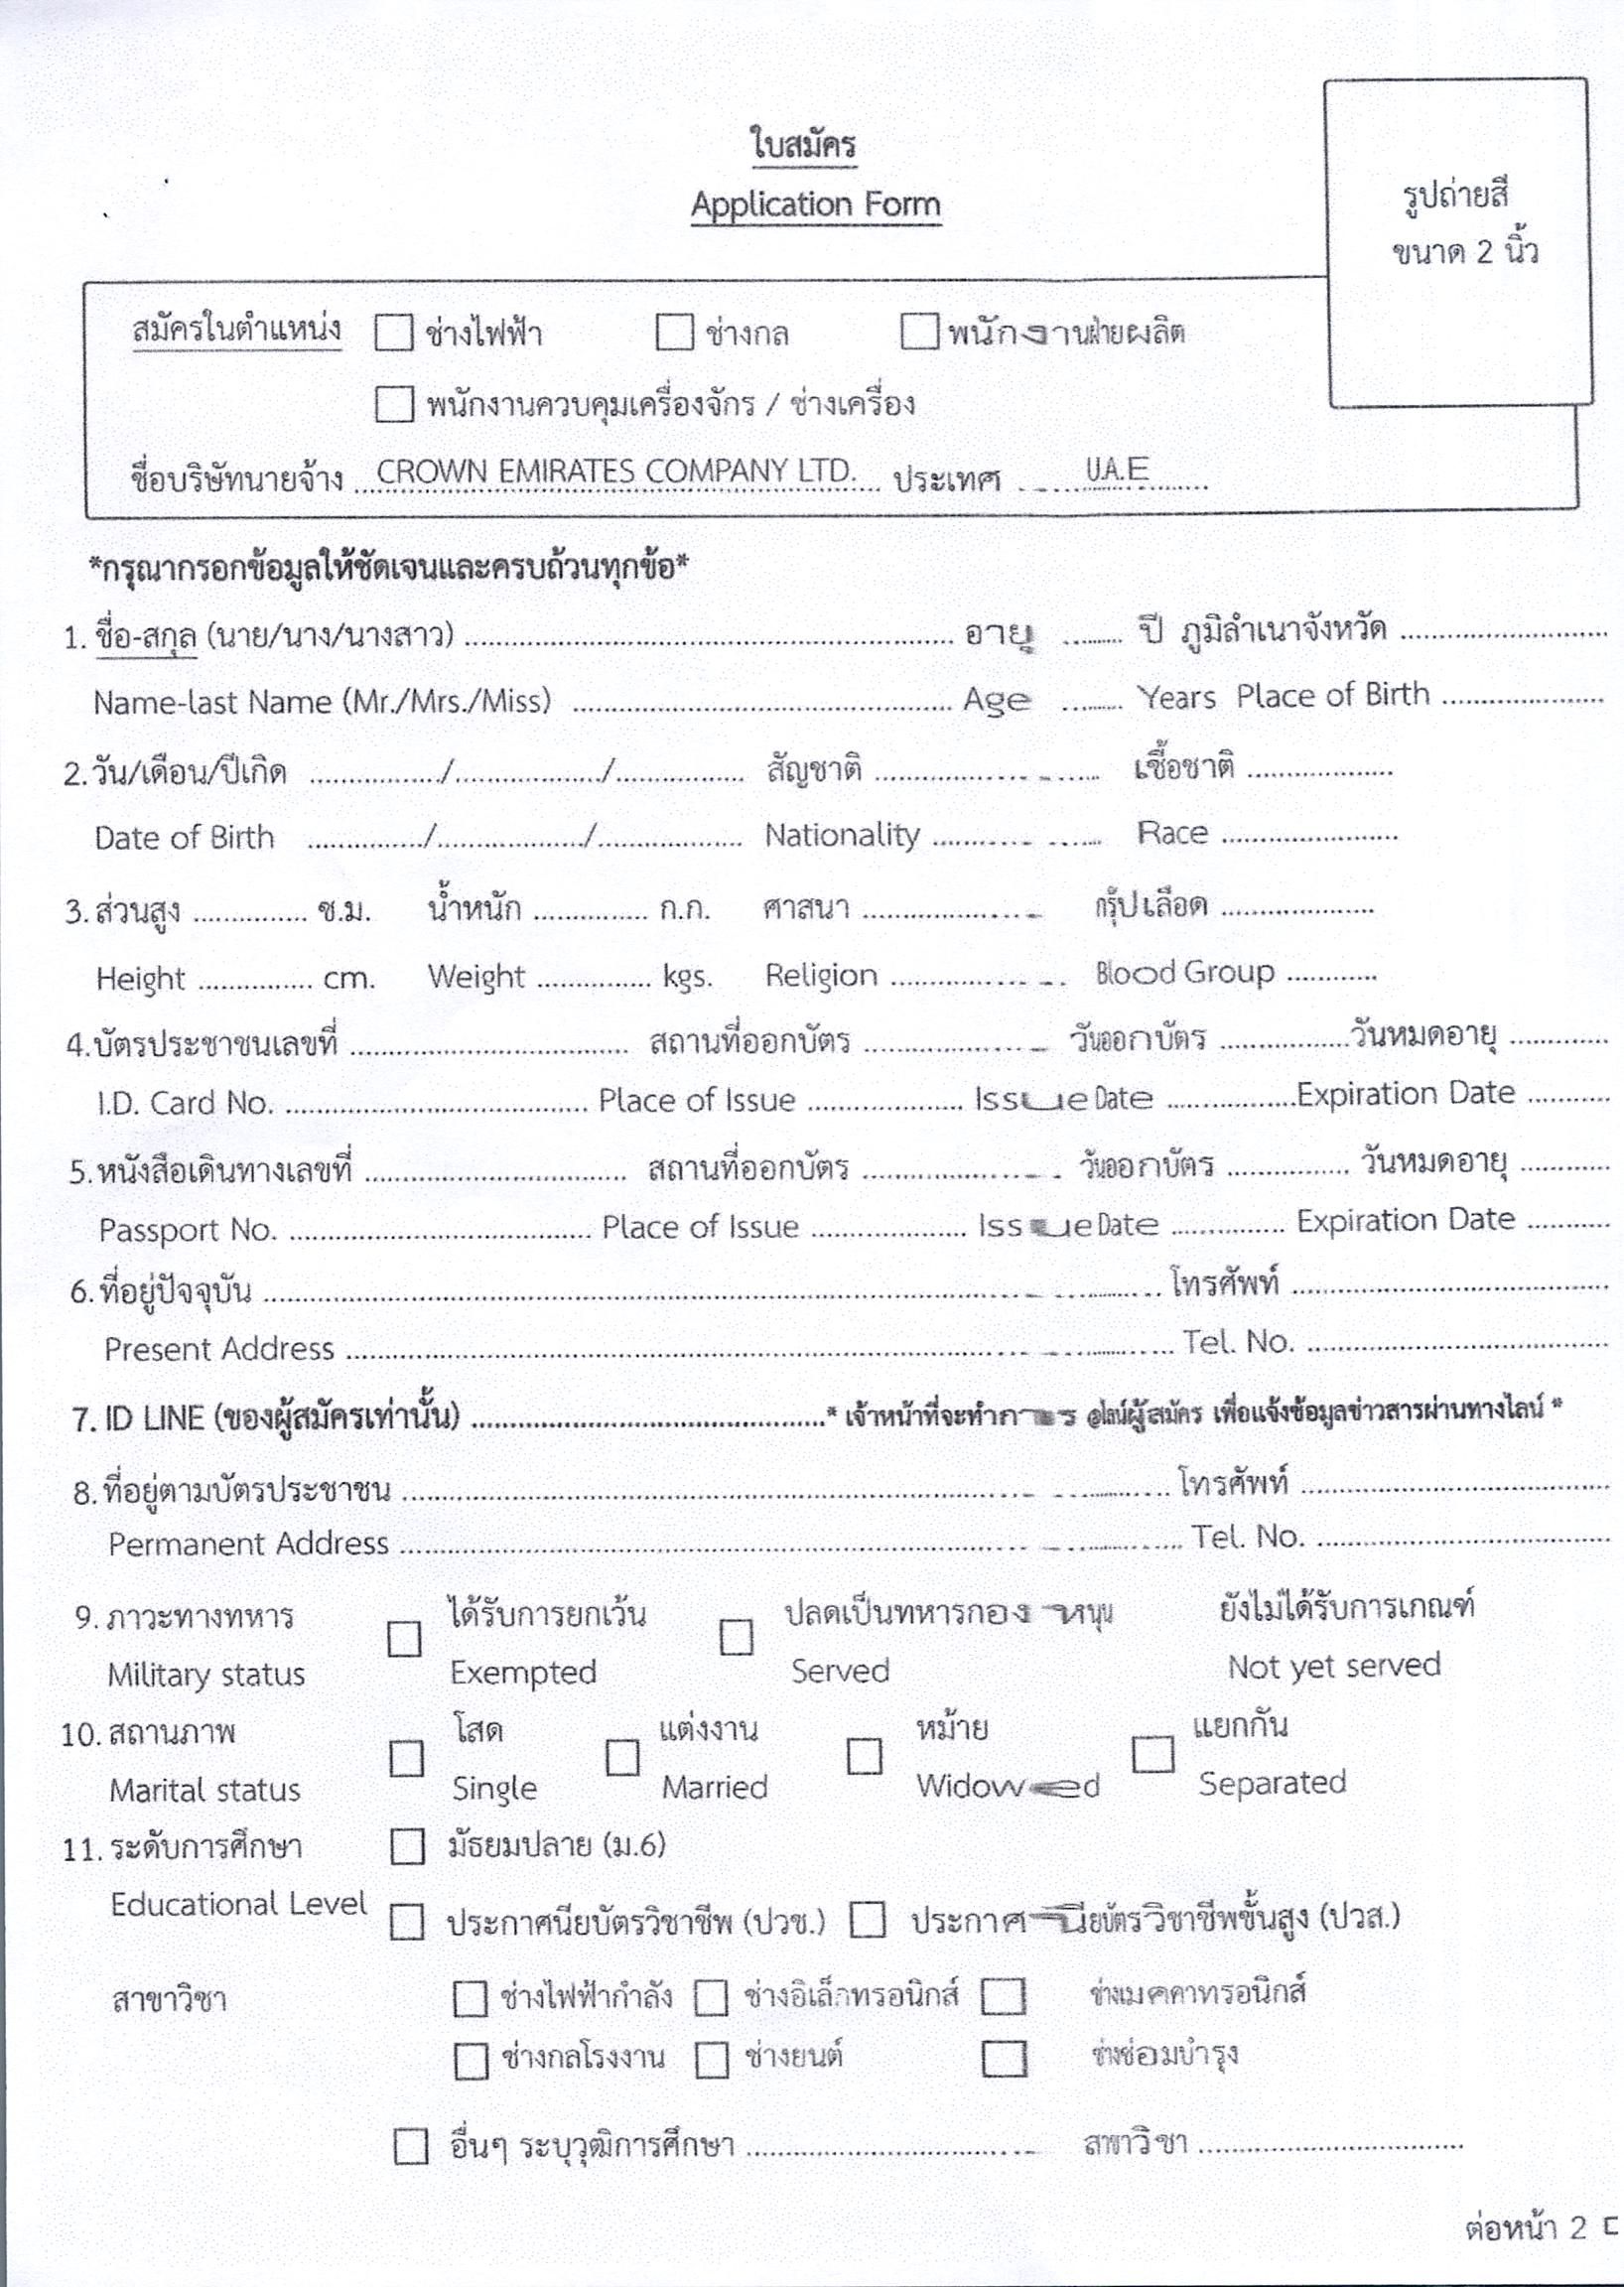 ใบสมัคร
Application Form
รูปถ่ายสี
ขนาด 2 นิ้ว
สมัครในตำแหน่ง ช่างไฟฟ้า ช่างกล พนักงานฝ่ายผลิต
พนักงานควบคุมเครื่องจักร / ช่างเครื่อง
ชื่อบริษัทนายจ้าง ...CROWN EMIRATES COMPANY LTD.... ประเทศ ......U.A.E......
*กรุณากรอกข้อมูลให้ชัดเจนและครบถ้วนทุกข้อ*
1. ชื่อ-สกุล (นาย/นาง/นางสาว) .................... อายุ ........ ปี ภูมิลำเนาจังหวัด ....................
Name-last Name (Mr./Mrs./Miss) .................... Age ........ Years Place of Birth ....................
2. วัน/เดือน/ปีเกิด ............/............/............ สัญชาติ .................... เชื้อชาติ ....................
Date of Birth ............/............/............ Nationality .................... Race ....................
3. ส่วนสูง ............ ซ.ม. น้ำหนัก ............ ก.ก. ศาสนา .................... กรุ๊ปเลือด ....................
Height ............ cm. Weight ............ kgs. Religion .................... Blood Group ............
4. บัตรประชาชนเลขที่ .................... สถานที่ออกบัตร .................... วันออกบัตร ............ วันหมดอายุ ............
I.D. Card No. .................... Place of Issue .................... Issue Date ............ Expiration Date ............
5. หนังสือเดินทางเลขที่ .................... สถานที่ออกบัตร .................... วันออกบัตร ............ วันหมดอายุ ............
Passport No. .................... Place of Issue .................... Issue Date ............ Expiration Date ............
6. ที่อยู่ปัจจุบัน .................... โทรศัพท์ ....................
Present Address .................... Tel. No. ....................
7. ID LINE (ของผู้สมัครเท่านั้น) ....................* เจ้าหน้าที่จะทำการ @ไลน์ผู้สมัคร เพื่อแจ้งข้อมูลข่าวสารผ่านทางไลน์ *
8. ที่อยู่ตามบัตรประชาชน .................... โทรศัพท์ ....................
Permanent Address .................... Tel. No. ....................
9. ภาวะทางทหาร ได้รับการยกเว้น ปลดเป็นทหารกองหนุน ยังไม่ได้รับการเกณฑ์
Military status Exempted Served Not yet served
10. สถานภาพ โสด แต่งงาน หม้าย แยกกัน
Marital status Single Married Widowed Separated
11. ระดับการศึกษา มัธยมปลาย (ม.6)
Educational Level ประกาศนียบัตรวิชาชีพ (ปวช.) ประกาศนียบัตรวิชาชีพขั้นสูง (ปวส.)
สาขาวิชา ช่างไฟฟ้ากำลัง ช่างอิเล็กทรอนิกส์ ช่างเมคคาทรอนิกส์
ช่างกลโรงงาน ช่างยนต์ ช่างซ่อมบำรุง
อื่นๆ ระบุวุฒิการศึกษา .................... สาขาวิชา ....................
ต่อหน้า 2